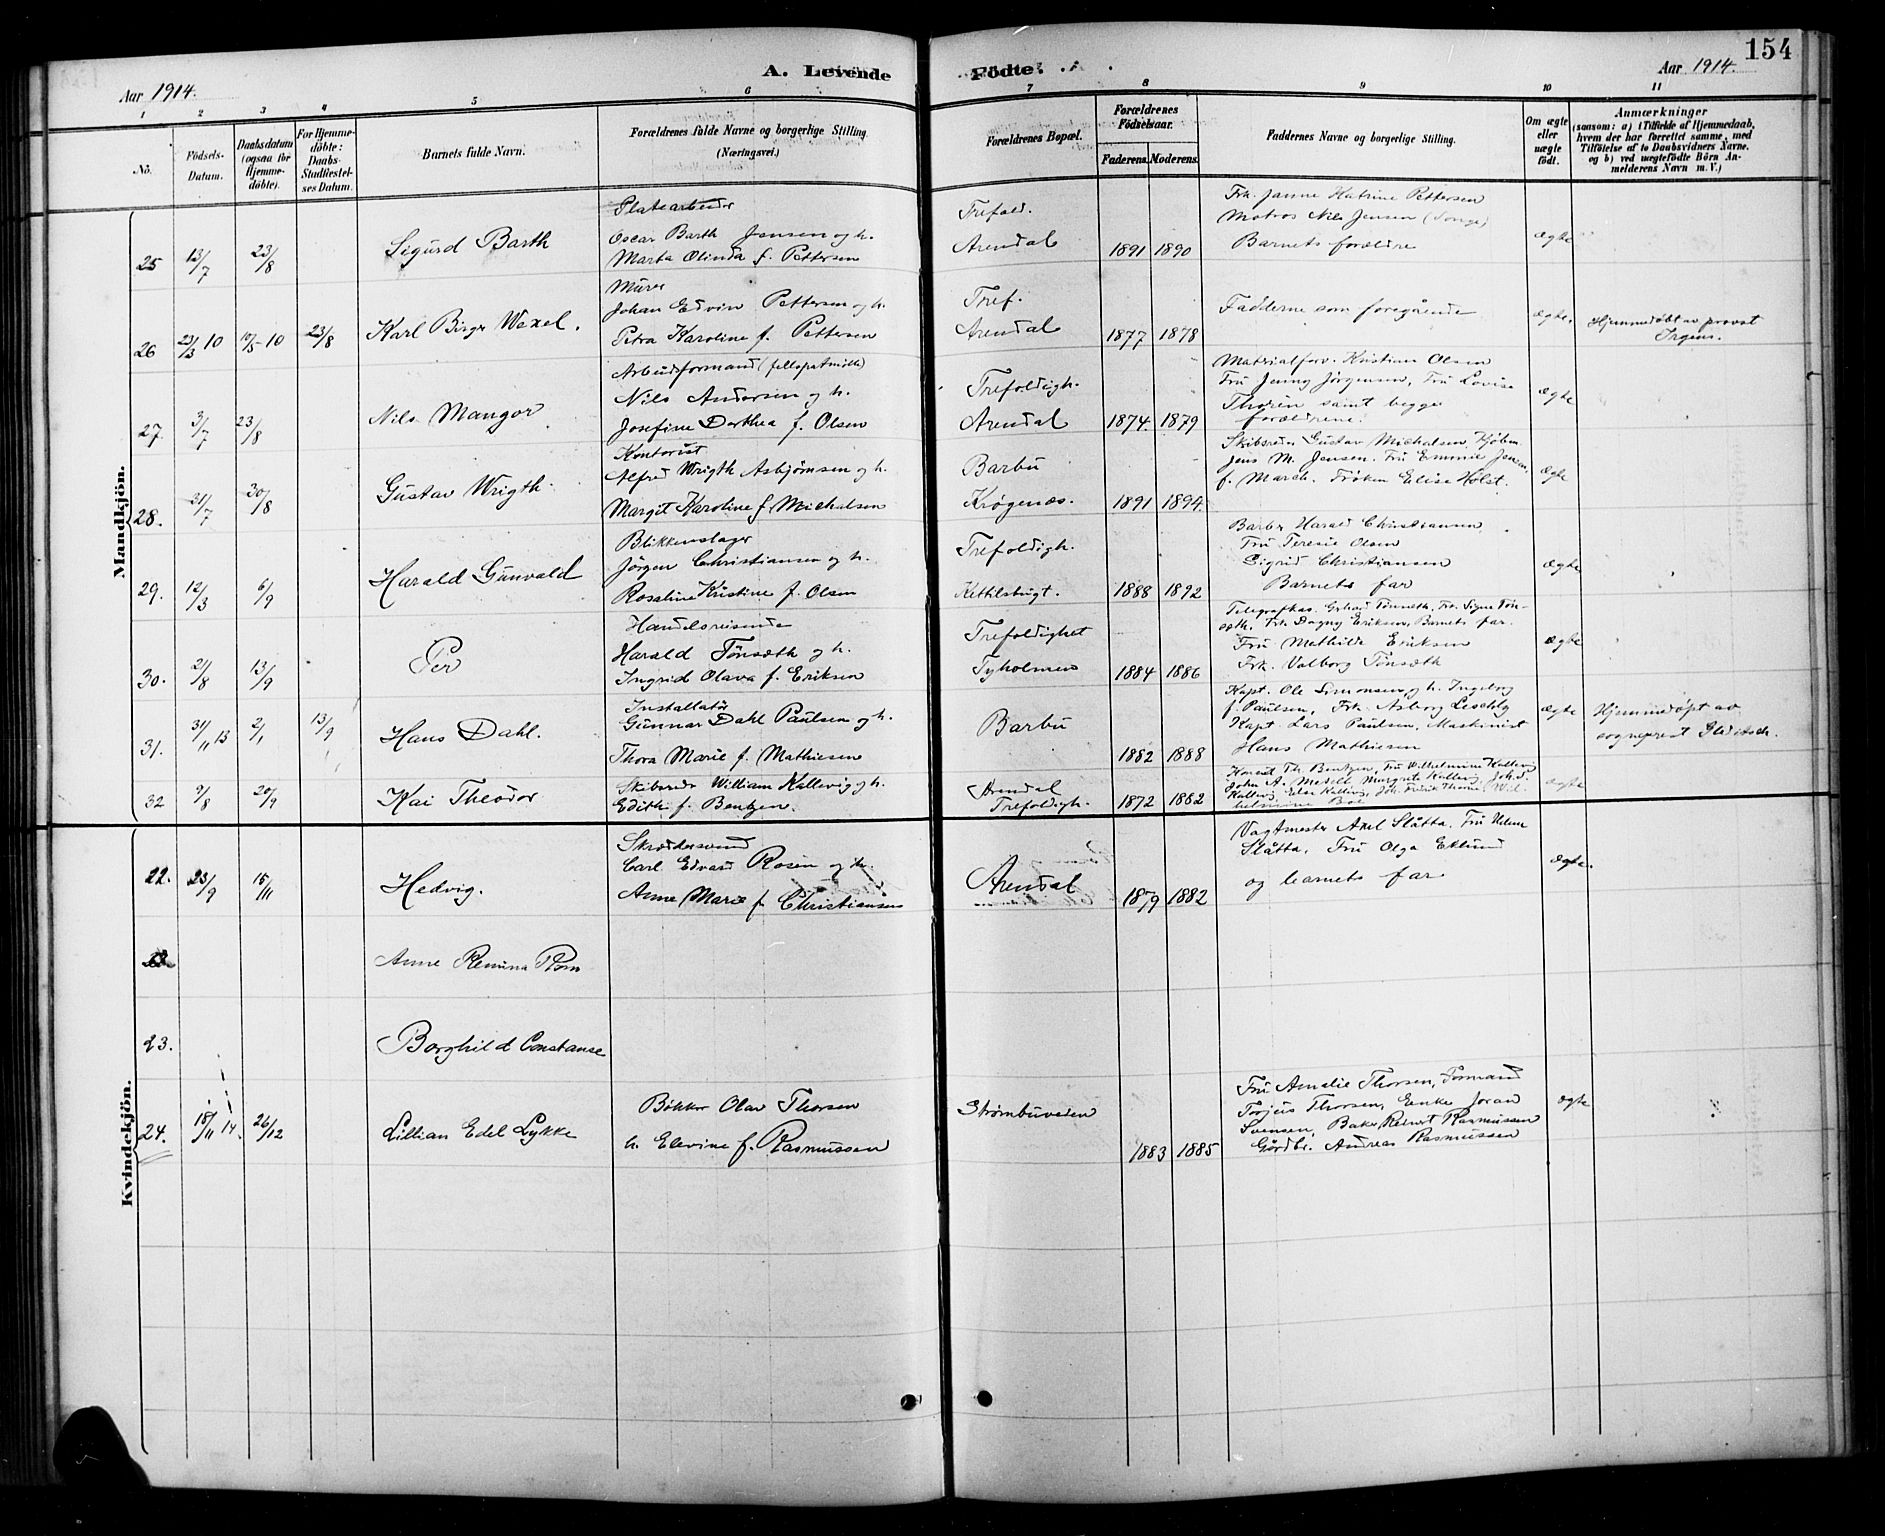 154
A. Levende Födte.
Aar 1914.
Aar 1914.
1 2 3 4 5 6 7 8 9 10 11
No.
Födsels-Datum.
Daabsdatum (ogsaa for Hjemme-döbte).
For Hjemme-döbte: Daabs-Stadfæstel-ses Datum.
Barnets fulde Navn.
Forældrenes fulde Navne og borgerlige Stilling.
(Næringsvei.)
Forældrenes Bopæl.
Forældrenes Födselsaar.
Faderens. Moderens.
Faddernes Navne og borgerlige Stilling.
Om ægte eller uægte födt.
Anmærkninger
(saasom: a) i Tilfælde af Hjemmedaab, hvem der har forrettet samme, med Tilföielse af to Daabsvidners Navne. og b) ved uægtefödte Börn An-melderens Navn m. V.)
Mandkjön.
25 13/7 23/8
Sigurd Barth
Platearbeider
Oscar Barth Jensen og h.
Marta Olinda f. Pettersen
Trefold.
Arendal
1891 1890
Frk. Janne Katrine Pettersen
Matros Nils Jensen (Songe)
Barnets forældre
ægte
26 23/3 10 10/5-10 23/8
Karl Birger Wexel.
Murer
Johan Edvin Pettersen og h.
Petra Karoline f. Pettersen
Tref.
Arendal
1877 1878
Fadderne som foregående
ægte
Hjemmedöbt av provst
Irgens.
27. 3/7 23/8
Nils Mangor
Arbeidsformand
Nils Andersen og h.
Josefine Dorthea f. Olsen
Trefoldigh.
Arendal
1874. 1879
Materialforv. Kristian Olsen
Fru Jenny Jørgensen, Fru Lovise
Thorén samt begge
forældrene.
ægte
28. 31/7 30/8
Gustav Wrigth.
Kontorist
Alfred Wrigth Asbjørnsen og h.
Margit Karoline f. Michalsen
Barbu
Krøgenæs.
1891 1894.
Skibsreder Gustav Michalsen, Kjøbm.
Jens M. Jensen. Fru Emmie Jensen
f. March. Frøken Elise Holst.
ægte
29. 12/3 6/9
Harald Gunvald
Blikkenslager
Jörgen Christiansen og h.
Rosaline Kristine f. Olsen
Trefoldigh.
Kittilsbugt.
1888 1892
Barber Harald Christiansen
Fru Teresie Olsen
Sigrid Christiansen
Barnets far
ægte
30. 2/8 13/9
Per
Handelsreisende
Harald Tönsæth og h.
Ingrid Olava f. Eriksen
Trefoldighet
Tyholmen
1884 1886
Telegrafkas. Gerhard Tönseth, Fr. Signe Tön-
seth, Frk. Dagny Eriksen, Barnets far.
Fru Mathilde Eriksen
Frk. Valborg Tönsæth
ægte
31. 31/11 13 2/1 13/9
Hans Dahl.
Installatör
Gunnar Dahl Paulsen og h.
Thora Marie f. Mathiesen
Barbu
1882 1888
Kapt. Ole Simonsen og h. Ingeborg
f. Paulsen, Frk. Asborg
Kapt. Lars Paulsen, Maskinist
Hans Mathiesen
ægte
Hjemmedøpt av
sogneprest Gleditsch.
32 9/8 20/9
Kai Theodor.
Skibsreder William Kallevig og h.
Edith f. Bentzen.
Arendal
Trefoldigh.
1872 1882
Konsul Th. Bentzen, Fru Wilhelmine Kallevig
John A. Margrete Kallevig, Joh. S.
Kallevig, Else Kallevig, Joh. Fredrik Thorne, Wil-
helmine Boe
ægte
Kvindekjön.
22. 23/9 15/11
Hedvig.
Skræddersvend
Carl Edvard Rosén og h.
Anne Marie f. Christiansen
Arendal
1879 1882
Vagtmester Axel Slåtta. Fru Helene
Slåtta, Fru Olga Eklund
og barnets far
ægte.
Anne
23.
Borghild Constanse
24. 18/11 14. 26/12
Lillian Edel Lykke
Bøkker Olav Thorsen
h. Elevine f. Rasmussen
Strømbuveien
1883 1885
Fru Amalie Thorsen, Formand
Torjus Thorsen, Enke Joran
Svensen, Baker Reinert Rasmussen
Gårdbr. Andreas Rasmussen
ægte